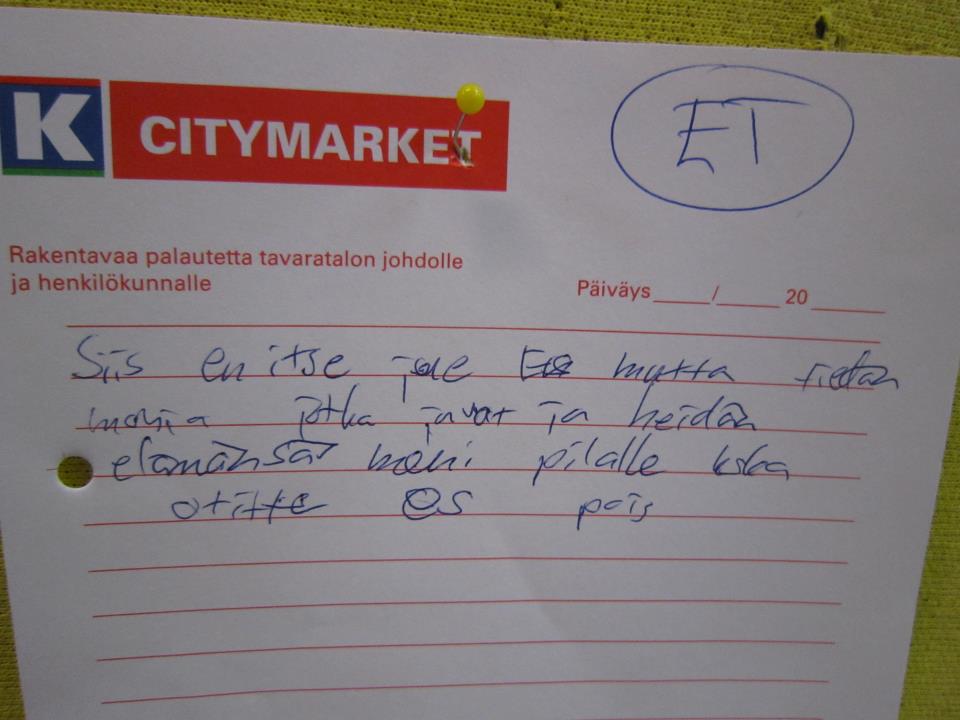 K CITYMARKET
ET
Rakentavaa palautetta tavaratalon johdolle
ja henkilökunnalle
Päiväys ____/____ 20 ____
Siis en itse juo ES mutta tiedän
monia jotka juvat ja heidän
elämänsä meni pilalle koska
otitte ES pois